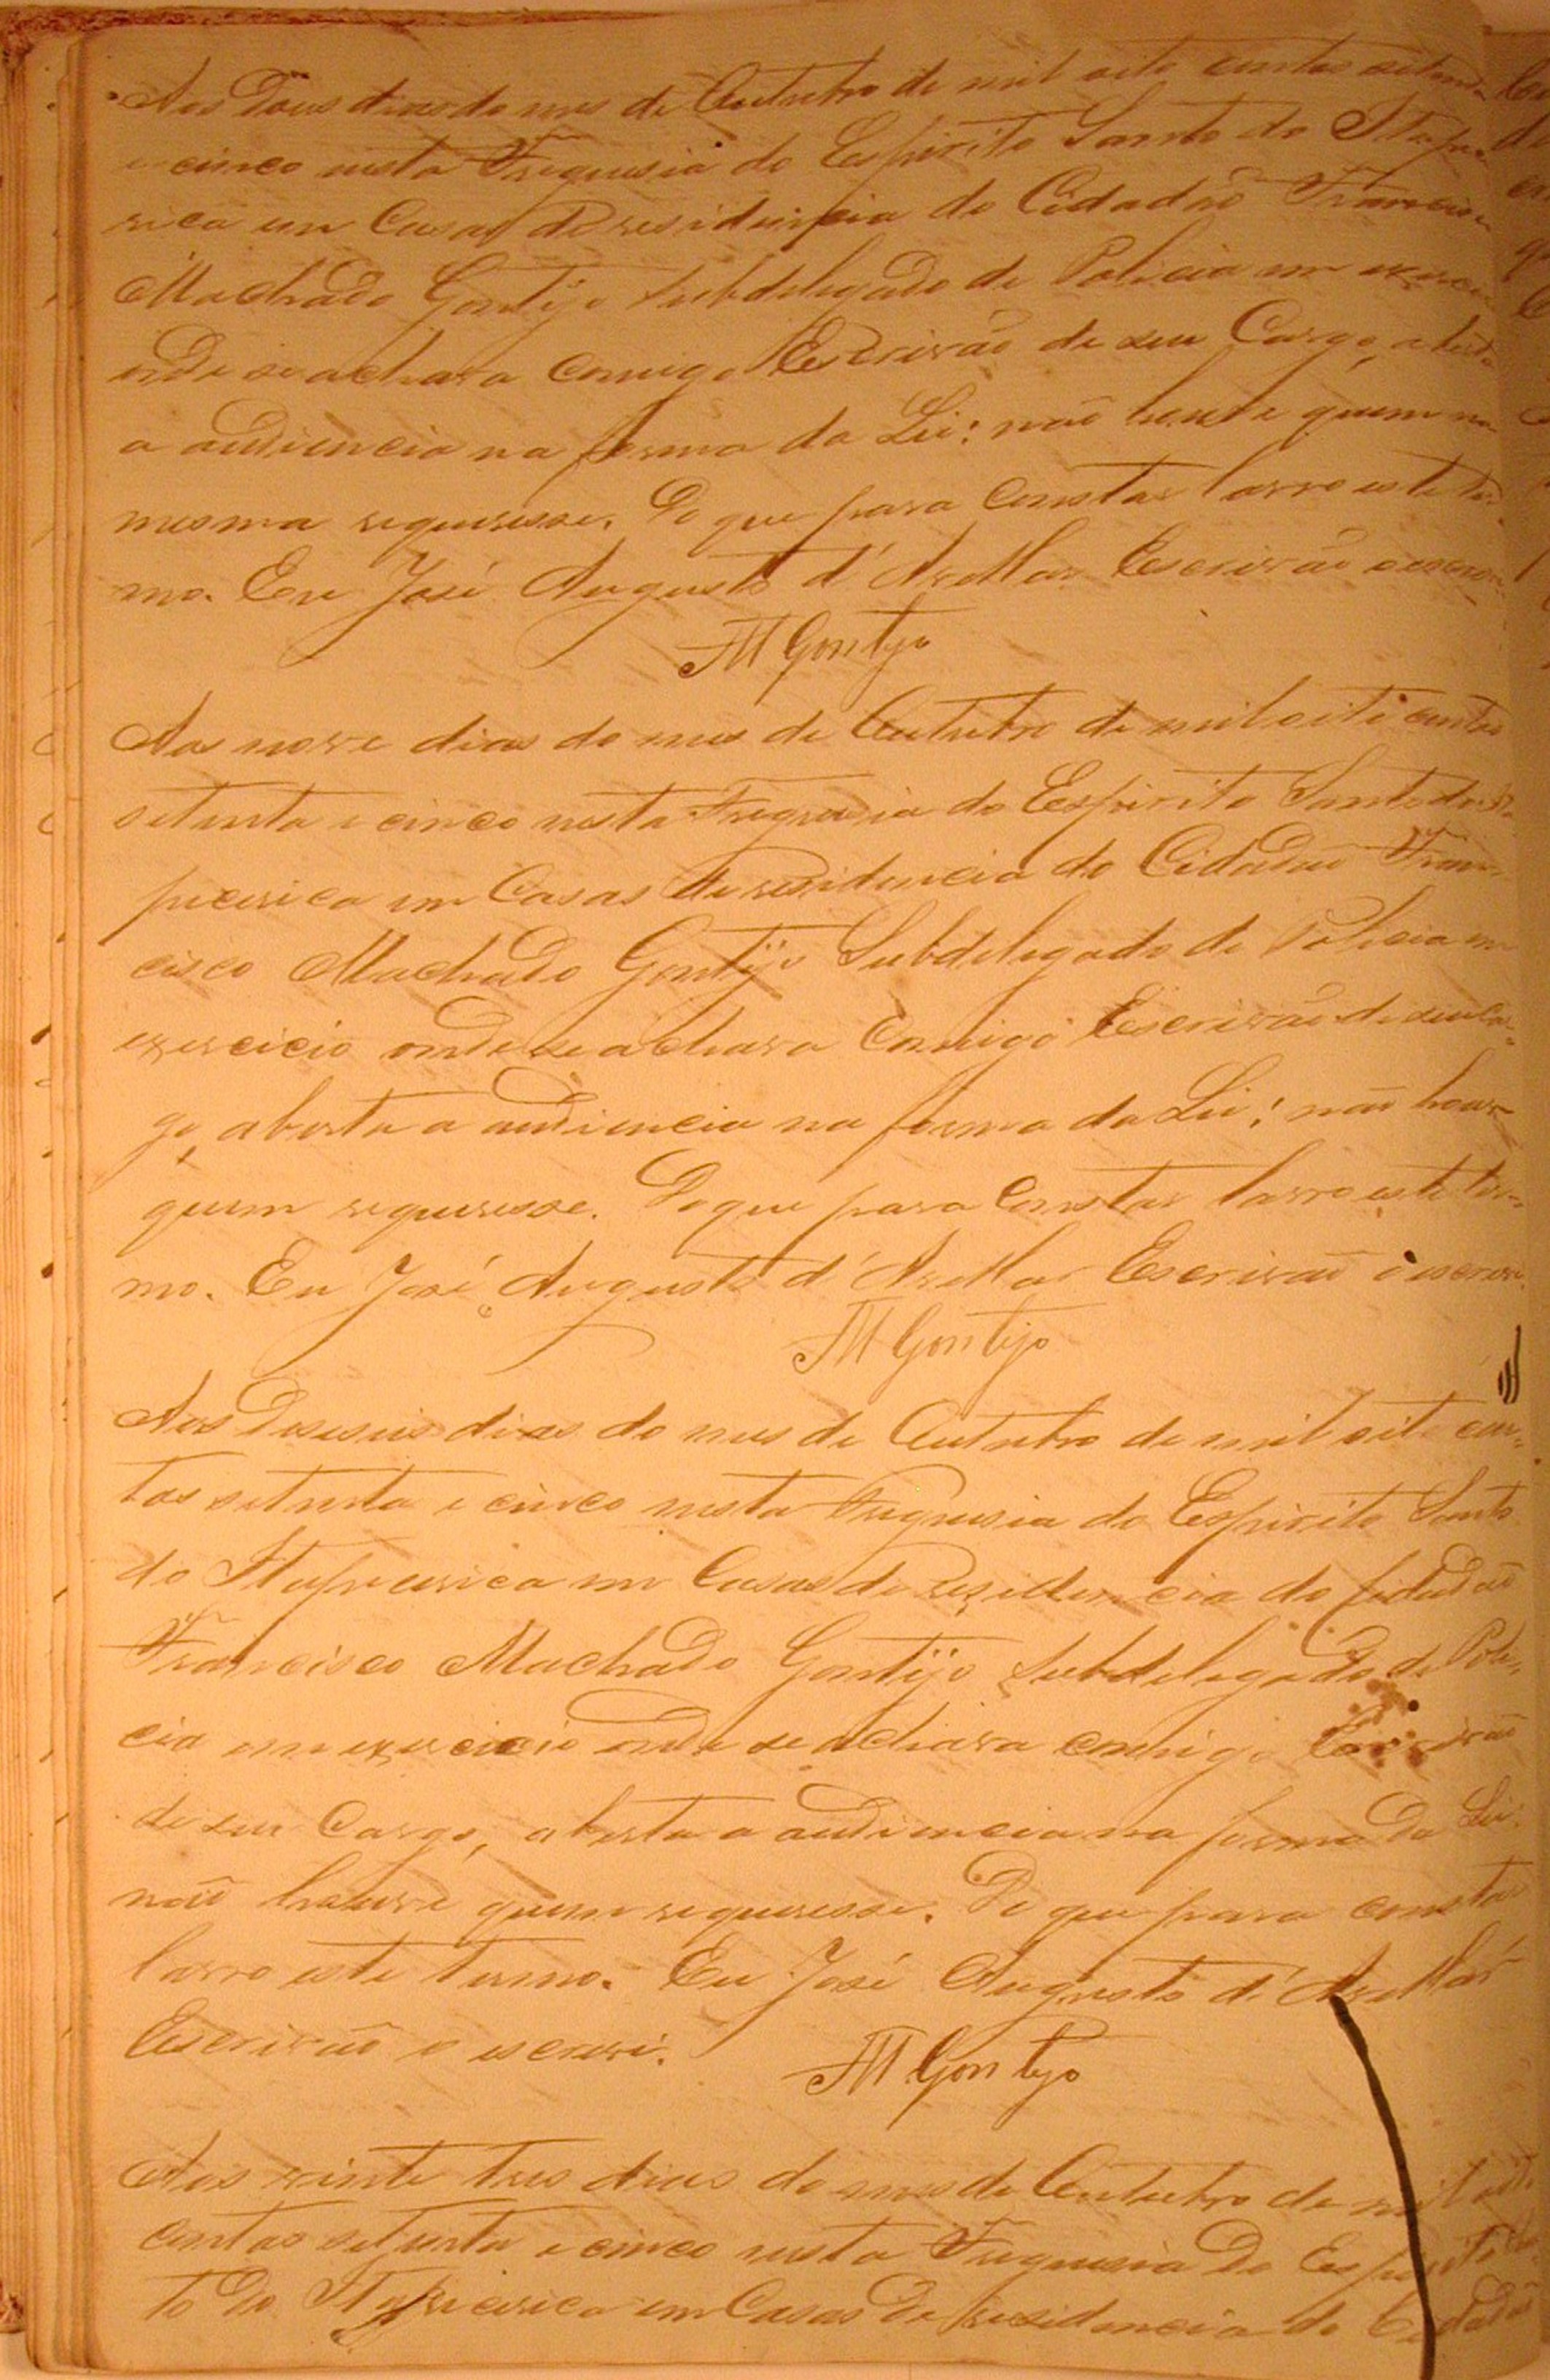 Aos dous dias do mes de Outubro de mil oito centos setenta
e cinco nesta Freguesia do Espirito Santo do Itape
cirica em Casas de residencia do Cidadão Francisco
Machado Gontijo Subdelegado de Policia em exerci
onde se achava comigo Escrivão de seu Cargo, aberta
a audiencia na forma da Lei: não houve quem na
mesma requeresse. Do que para constar lavro este ter
mo. Eu José Augusto d'Avellar Escrivão o escrevi
FM Gontijo
Aos nove dias do mes de Outubro de mil oito centos
setenta e cinco nesta Freguesia do Espirito Santo do Ita
pecerica em Casas de residencia do Cidadão Fran
cisco Machado Gontijo Subdelegado de Policia em
exercicio onde se achava comigo Escrivão de seu Car-
go, aberta a audiencia na forma da Lei; não houve
quem requeresse. Do que para constar lavro este ter-
mo. Eu José Augusto d'Avellar Escrivão o escrevi
FM Gontijo
Aos deseseis dias do mes de Outubro de mil oito cen-
tos setenta e cinco nesta Freguesia do Espirito Santo
do Itapecerica em Casas de residencia do Cidadão
Francisco Machado Gontijo Subdelegado de Poli-
cia em exercicio onde se achava comigo Escrivão
de seu Cargo, aberta a audiencia na forma da Lei:
não houve quem requeresse. Do que para constar
lavro este termo. Eu José Augusto d'Avellar
Escrivão o escrevi. FM Gontijo
Aos vinte tres dias do mes de Outubro de mil oito
centos setenta e cinco nesta Freguesia do Espirito San
to do Itapecerica em Casas de residencia do Cidadão